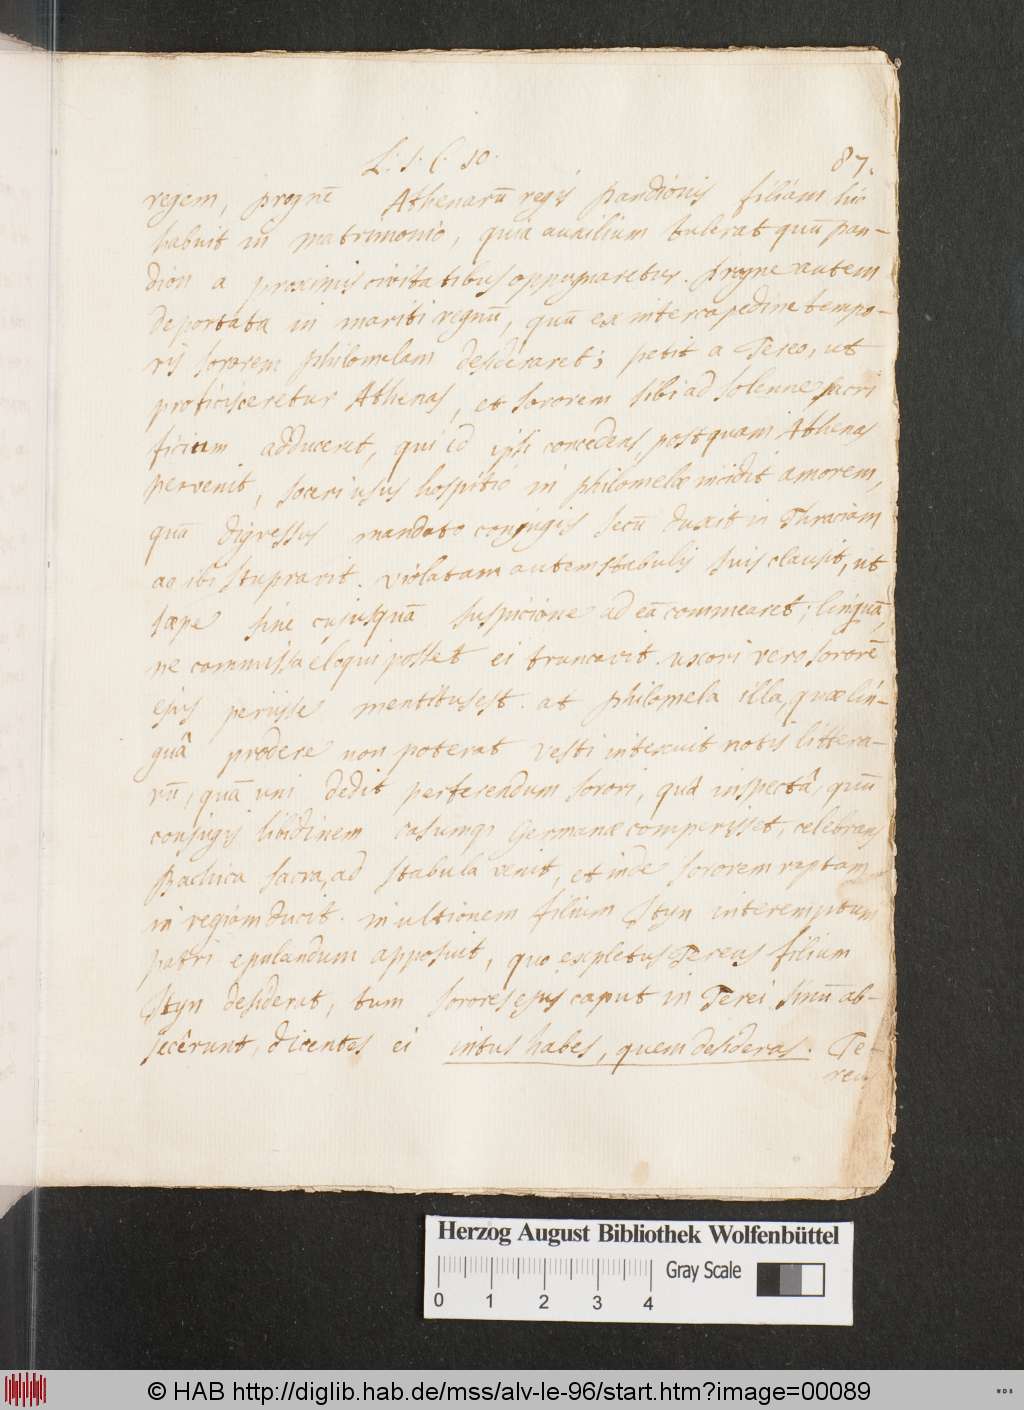 L. 1. C. 10. 87.
regem, prognē Athenarū regis pandionis filiam hic
habuit in matrimonio, quia auxilium tulerat quū pan-
dion a proximis civitatibus oppugnaretur. progne autem
deportata in mariti regnū, quū ex intercapedine tempo-
ris sororem philomelam desideraret; petit a Tereo, ut
proficisceretur Athenas, et sororem sibi ad solenne sacri
ficium adduceret, qui id ipsi concedens, postquam Athenas
pervenit, soceri usus hospitio in philomelæ incidit amorem,
quā digressus mandato conjugis secū duxit in Thraciam
ac ibi stupravit. violatam autem stabulis suis clausit, ut
sæpe sine cujusquā suspicione ad eā commearet; linguā,
ne commissa eloqui posset ei truncavit. uxori vero sororē
ejus periisse mentitus est. at philomela illa, quæ lin-
guâ prodere non poterat vesti intexuit notis littera-
rū, quā uni dedit perferendum sorori, quâ inspectâ, quū
conjugis libidinem casumq; Germanæ comperisset, celebrans
Bachica sacra, ad stabula venit, et inde sororem raptam
in regiam ducit. in ultionem filium Ityn interemptum
patri epulandum apposuit, quo expletus Tereus filium
Ityn desiderat, tum sorores ejus caput in Terei sinū ab-
jecêrunt, dicentes ei intus habes, quem desideras. Te-
reus
Herzog August Bibliothek Wolfenbüttel
Gray Scale
0 1 2 3 4
© HAB http://diglib.hab.de/mss/alv-le-96/start.htm?image=00089